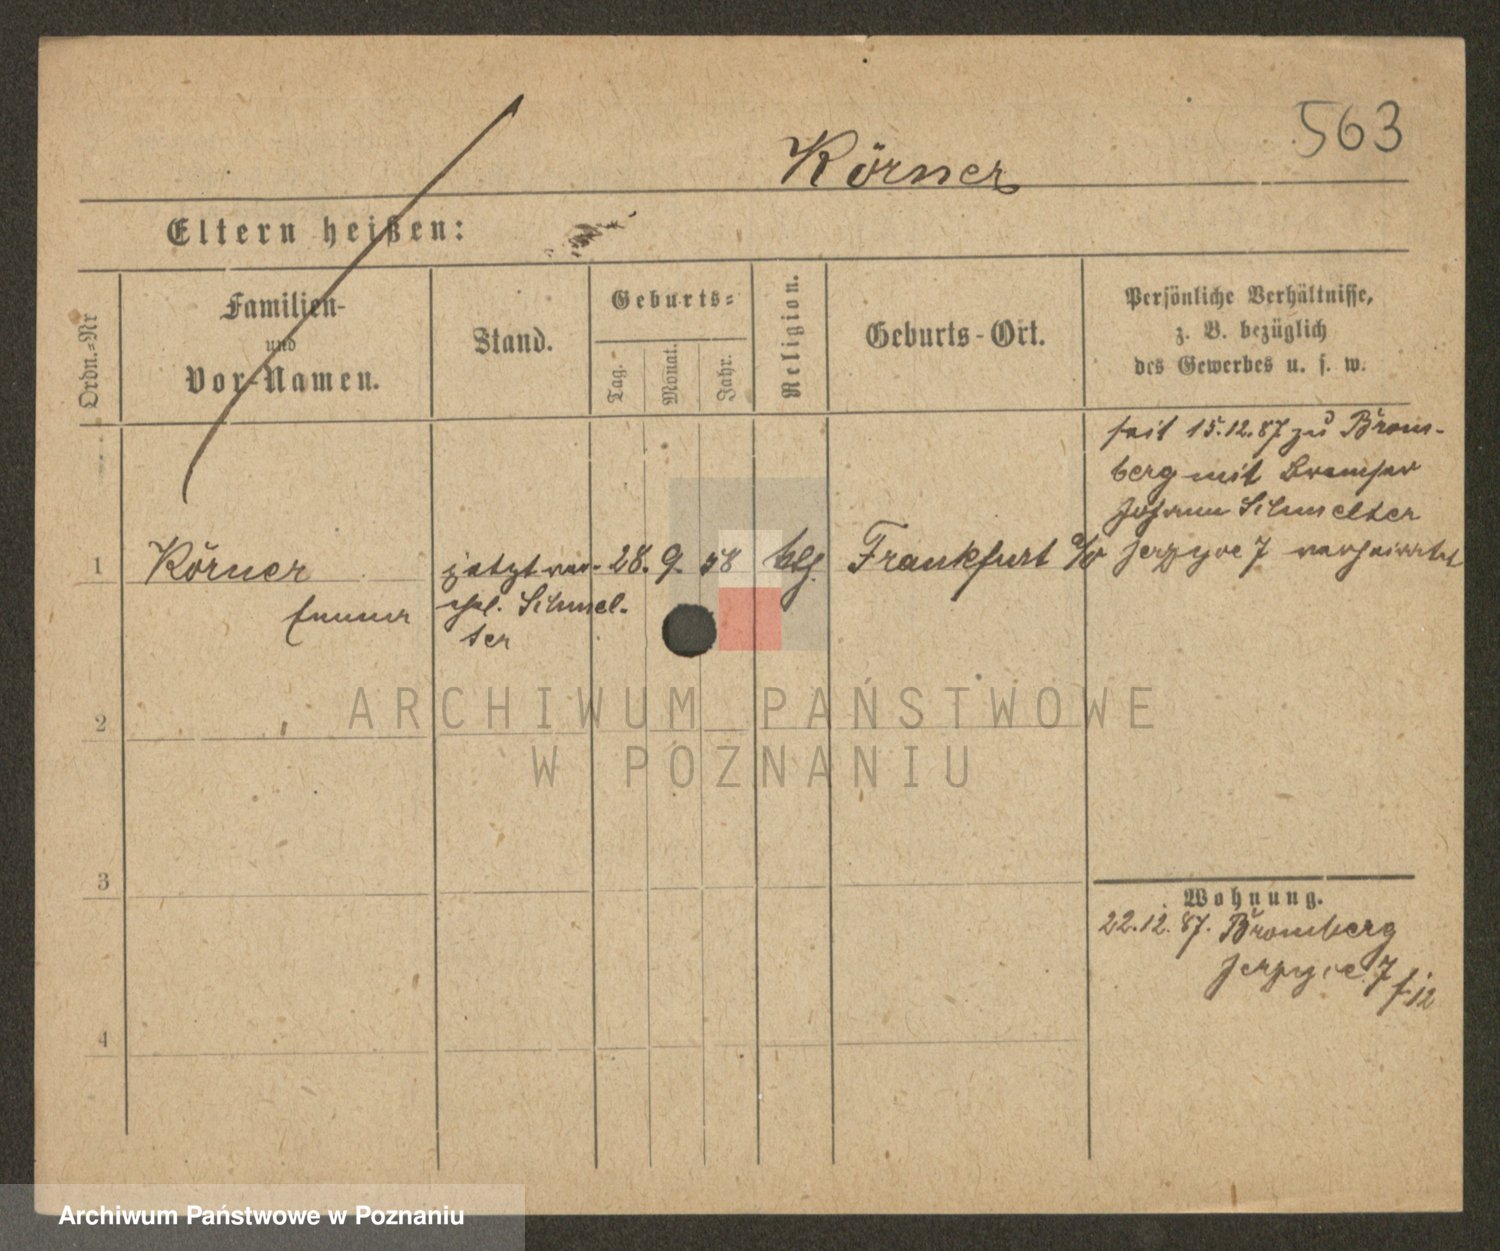 563
Körner
Eltern heißen:
Ordn.-Nr
Familien-
und
Vor-Namen.
Stand.
Geburts-
Tag.
Monat.
Jahr.
Religion.
Geburts-Ort.
Persönliche Verhältnisse,
z. B. bezüglich
des Gewerbes u. s. w.
seit 15.12.87 zu Brom-
berg mit Bremser
Johann Schmelter
1 Körner jetzt ver- 28. 9. 58 Frankfurt a/O 7 verheirathet
Emma ehel. Schmel-
ter
2
ARCHIWUM PAŃSTWOWE
W POZNANIU
3
Wohnung.
22.12.87. Bromberg
7
4
Archiwum Państwowe w Poznaniu